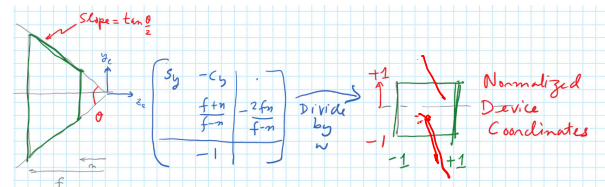 Slope = tan θ/2
y_c
z_c
θ
n
f
s_y -c_y .
f+n/f-n -2fn/f-n
-1
Divide
by
w
+1
-1
-1 +1
Normalized
Device
Coordinates